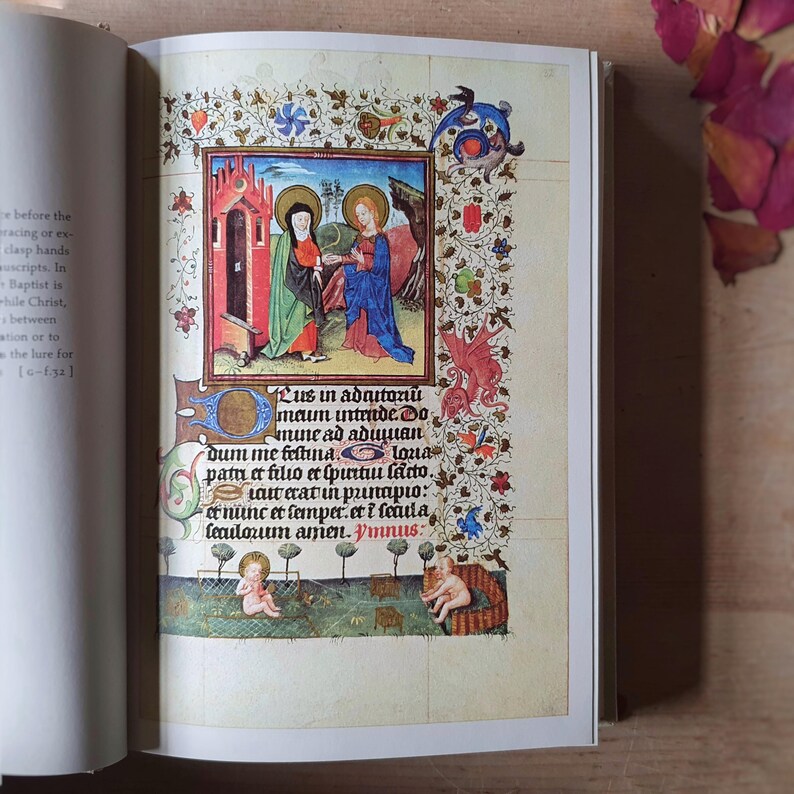 re before the
eracing or ex-
clasp hands
uscripts. In
Baptist is
while Christ,
s between
ation or to
s the lure for
[ G–f.32 ]
Deus in adiutoriū
meum intende. Do
mine ad adiuuan
dum me festina. Gloria
patri et filio et spiritui sācto.
Sicut erat in principio:
et nunc et semper. et ī secula
seculorum amen. ymnus: